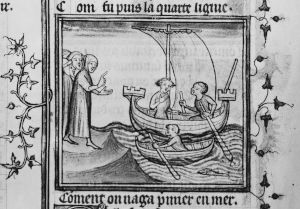 C om fu puis la quarte ligne.
Coment on naga p̄mier en mer.